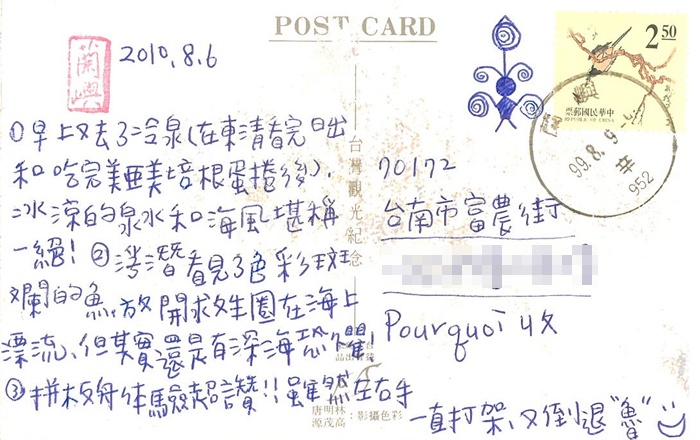 POST CARD
蘭嶼
2010.8.6
①早上又去了冷泉(在東清看完日出
和吃完美亞美培根蛋捲後),
冰涼的泉水和海風堪稱
一絕!②浮潛看見了色彩斑
斕的魚,放開救生圈在海上
漂流、但其實還是有深海恐懼!
③拼板舟体驗超讚!!雖然左右手
一直打架、又倒退"魯"
2 50
中華民國郵票
REPUBLIC OF CHINA
蘭嶼
99.8.9
952
台灣觀光紀念
70172
台南市富農街
Pourquoi 收
彩色攝影:林明源